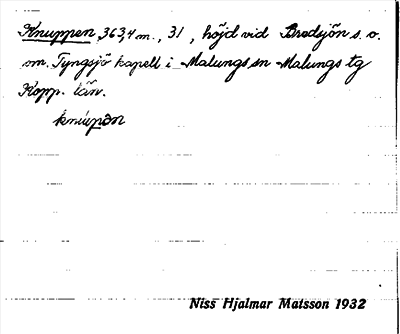 Knuppen, 363,4 m., 31, höjd vid Bredsjön s. o.
om. Tyngsjö kapell i Malungs sn Malungs tg
Kopp. län.
knúpən
Niss Hjalmar Matsson 1932